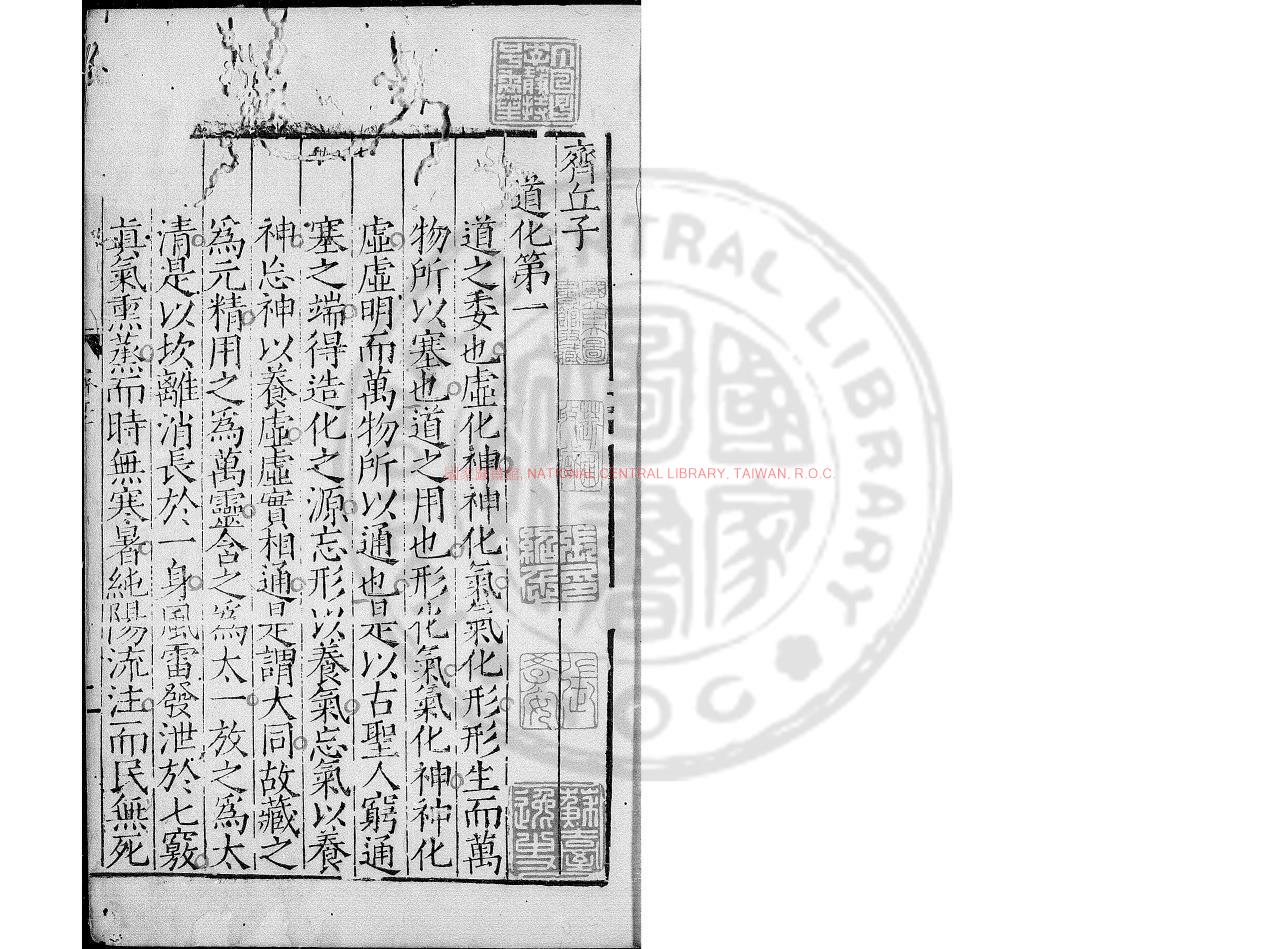 齊丘子
道化第一
道之委也虛化神神化氣氣化形形生而萬
物所以塞也道之用也形化氣氣化神神化
虛虛明而萬物所以通也是以古聖人窮通
塞之端得造化之源忘形以養氣忘氣以養
神忘神以養虛虛實相通是謂大同故藏之
爲元精用之爲萬靈含之爲太一放之爲太
清是以坎離消長於一身風雷發泄於七竅
眞氣熏蒸而時無寒暑純陽流注而民無死
國家圖書館, NATIONAL CENTRAL LIBRARY, TAIWAN, R.O.C.
CENTRAL LIBRARY
R O C